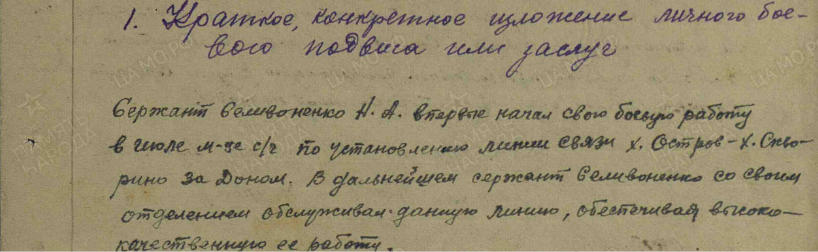 1. Краткое, конкретное изложение личного бое-
вого подвига или заслуг
Сержант Селивоненко Н. А. впервые начал свою боевую работу
в июле м-це с/г по установлению линии связи х. Остров - х. Скво-
рино за Доном. В дальнейшем сержант Селивоненко со своим
отделением обслуживал данную линию, обеспечивая высоко-
качественную ее работу.